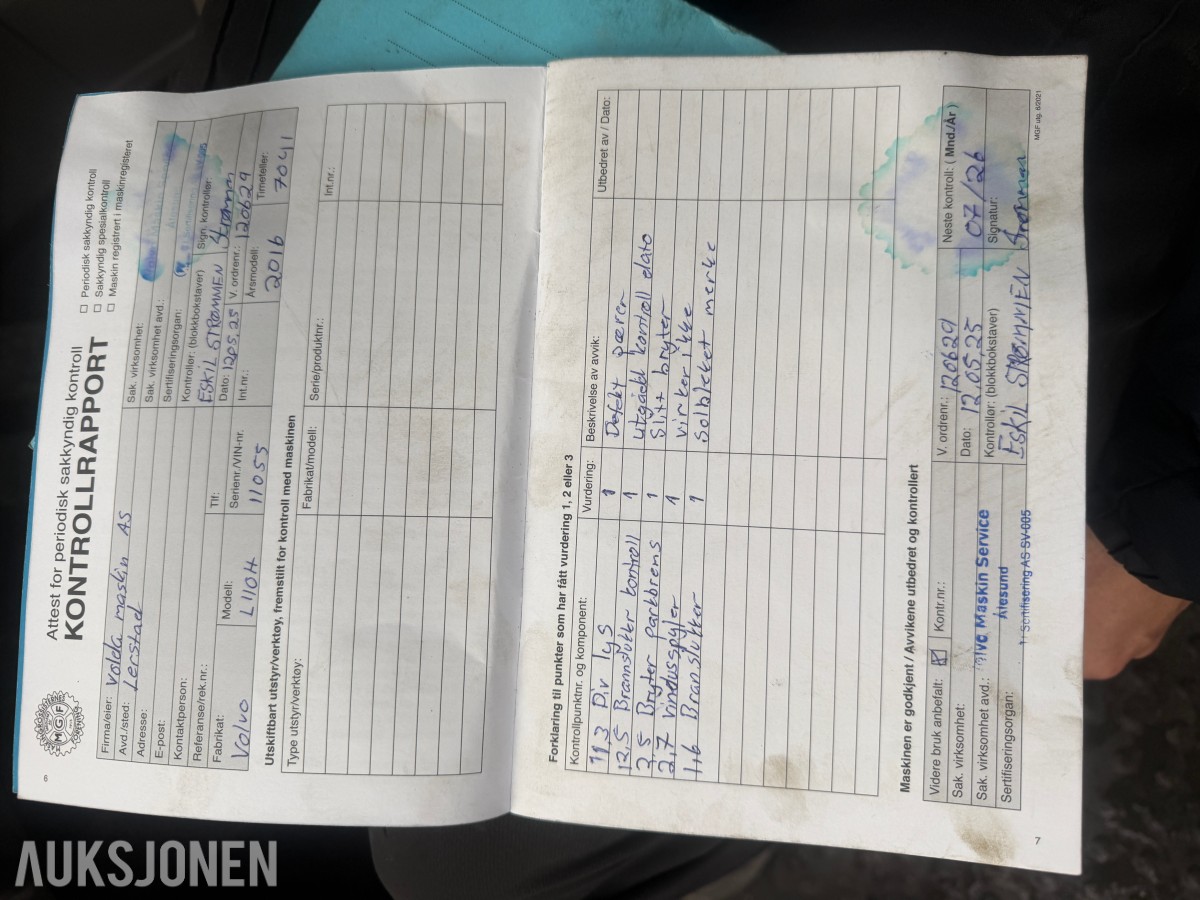 6
MGF
Attest for periodisk sakkyndig kontroll
KONTROLLRAPPORT
☐ Periodisk sakkyndig kontroll
☐ Sakkyndig spesialkontroll
☐ Maskin registrert i maskinregisteret
Firma/eier: Volda maskin AS
Avd./sted: Lerstad
Adresse:
E-post:
Kontaktperson:
Referanse/rek.nr.:
Tlf:
Sak. virksomhet:
Sak. virksomhet avd.:
Sertifiseringsorgan:
Kontrollør: (blokkbokstaver) ESKIL STRØMMEN
Sign. kontrollør Strømmen
Dato: 12.05.25
V. ordrenr.: 120629
Fabrikat: Volvo
Modell: L110H
Serienr./VIN-nr. 11055
Int.nr.:
Årsmodell: 2016
Timeteller: 7041
Utskiftbart utstyr/verktøy, fremstilt for kontroll med maskinen
Type utstyr/verktøy: Fabrikat/modell: Serie/produktnr.: Int.nr.:
Forklaring til punkter som har fått vurdering 1, 2 eller 3
Kontrollpunktnr. og komponent: Vurdering: Beskrivelse av avvik: Utbedret av / Dato:
11,3 Div lys 1 Defekt pærer
12,5 Brannslukker kontroll 1 utgåckt kontroll dato
2,5 Bryter parkbrems 1 Slitt bryter
2,7 Vindusspyler 1 virker ikke
1,6 Branslukker 1 Solbleket merke
Maskinen er godkjent / Avvikene utbedret og kontrollert
Videre bruk anbefalt: ☒ Kontr.nr.:
V. ordrenr.: 120629
Neste kontroll: ( Mnd./År ) 07/26
Sak. virksomhet:
Dato: 12.05.25
Sak. virksomhet avd.: Maskin Service
Ålesund
Kontrollør: (blokkbokstaver) ESKIL STRØMMEN
Signatur: Strømmen
Sertifiseringsorgan: Sertifisering AS SV-005
7
MGF utg. 6/2021
AUKSJONEN